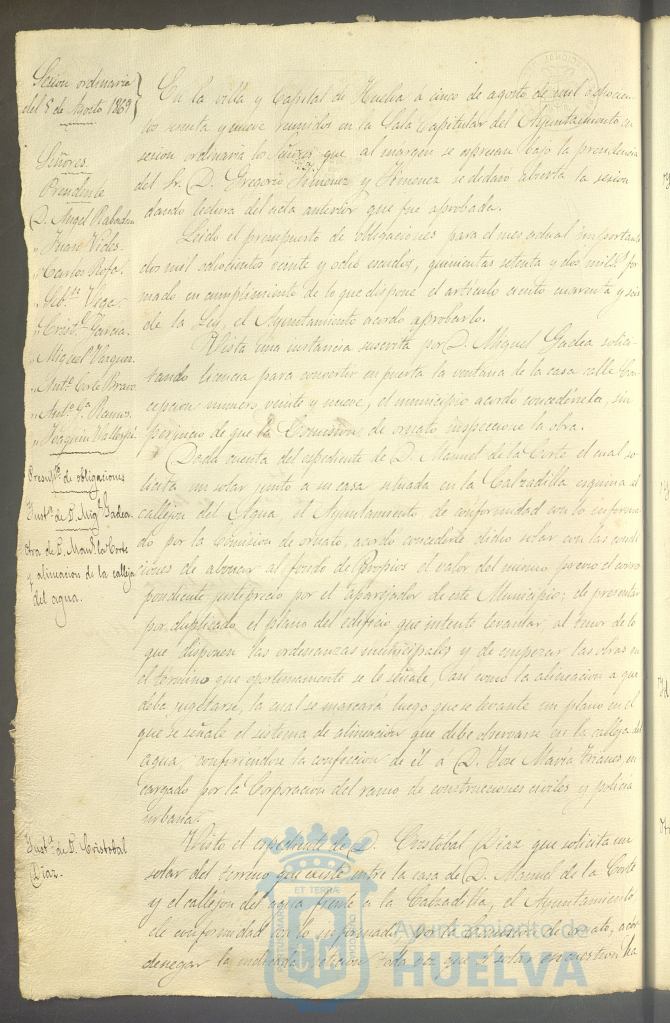 Sesion ordinaria
del 5 de Agosto 1869
Señores
Presidente
D. Angel Rabadan
" Juan Vides
" Carlos Rofa
" Seb.n Vega
" Crist.l Garcia
" Miguel Vazquez
" Ant.o Corte Bravo
" Ant.o G.a Ramos
" Joaquin Vallespi
Presup.to de obligaciones
Inst.a de D. Mig.l Gadea
Otra de D. Man.l la Corte
y alineacion de la calleja
del agua.
Inst.a de D. Cristobal
Diaz.
En la villa y Capital de Huelva a cinco de agosto de mil ochocien
tos sesenta y nueve reunidos en la Sala Capitular del Ayuntamiento en
sesion ordinaria los Señores que al margen se espresan bajo la presidencia
del Sr. D. Gregorio Jimenez y Jimenez se declaro abierta la sesion
dando lectura del acta anterior que fue aprobada.
Leido el presupuesto de obligaciones para el mes actual importante
dos mil ochocientos veinte y ocho escudos, quinientas setenta y dos mil.s for
mado en cumplimiento de lo que dispone el articulo ciento cuarenta y seis
de la Ley, el Ayuntamiento acordo aprobarlo.
Vista una instancia suscrita por D. Miguel Gadea solici-
tando licencia para convertir en puerta la ventana de la casa calle Con
cepcion numero veinte y nueve, el municipio acordó concedersela, sin
perjuicio de que la Comision de ornato inspeccione la obra.
Dada cuenta del espediente de D. Manuel de la Corte el cual so
licita un solar junto a su casa situada en la Calzadilla esquina al
callejon del Agua el Ayuntamiento de conformidad con lo informa
do por la Comision de ornato, acordó concederle dicho solar con las condi
ciones de abonar al fondo de Propios el valor del mismo previo el corres
pondiente justiprecio por el aparejador de este Municipio; de presentar
por duplicado el plano del edificio que intente levantar al tenor de lo
que disponen las ordenanzas municipales y de empezar las obras en
el término que oportunamente se le señale, así como la alineacion a que
deba sugetarse, la cual se marcará luego que se levante un plano en el
que se señale el sistema de alineacion que debe observarse en la calleja del
agua confiriéndose la confeccion de él á D. Jose Maria en
cargado por la Corporacion del ramo de construcciones civiles y policia
urbana.
Visto el espediente de D. Cristobal Diaz que solicita un
solar del terreno que existe entre la casa de D. Manuel de la Corte
y el callejon del agua frente a la Calzadilla, el Ayuntamiento
de conformidad con lo informado por la Comision de ornato, acordó
denegar la indicada peticion toda vez que el solar en cuestion ha
Ayuntamiento de
HUELVA